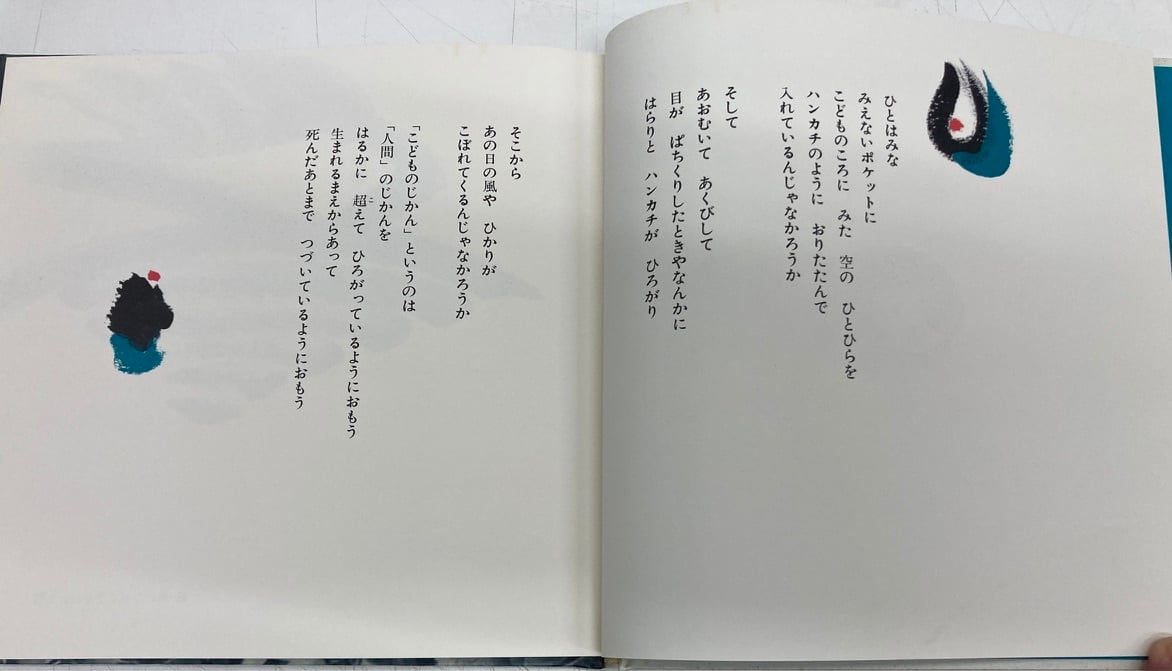 ひとはみな
みえないポケットに
こどものころに　みた　空の　ひとひらを
ハンカチのように　おりたたんで
入れているんじゃなかろうか
そして
あおむいて　あくびして
目が　ぱちくりしたときやなんかに
はらりと　ハンカチが　ひろがり
そこから
あの日の風や　ひかりが
こぼれてくるんじゃなかろうか
「こどものじかん」というのは
「人間」のじかんを
はるかに　超えて　ひろがっているようにおもう
生まれるまえからあって
死んだあとまで　つづいているようにおもう